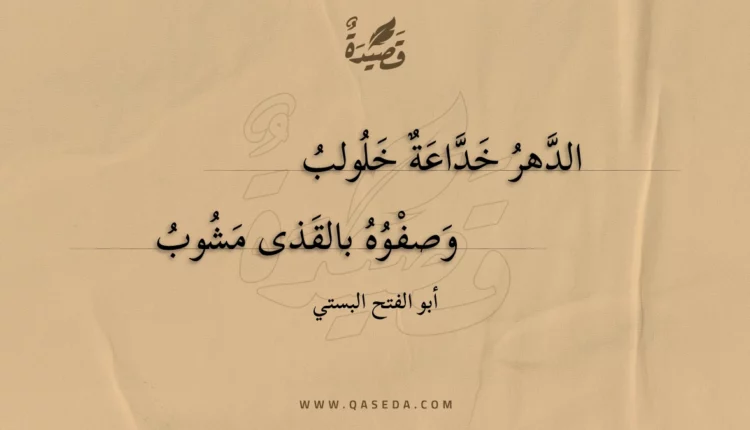 قَصِيدَةٌ
الدَّهرُ خَدَّاعَةٌ خَلُولبُ
وَصفْوُهُ بالقَذى مَشُوبُ
أبو الفتح البستي
WWW.QASEDA.COM